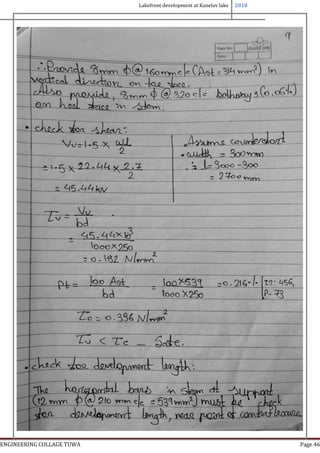 Lakefront development at Kanelav lake 2018
9
Page No.:
Date:
∴ Provide 8mm ϕ @ 160mm c/c (Ast = 314 mm²) in
vertical direction on toe face.
Also provide, 8mm ϕ @ 320 c/c bothways (0.06%)
on heel face in stem.
• check for shear:
Vu = 1.5 × wl/2
= 1.5 × 22.44 × 2.7/2
= 45.44 kN
Assume counterfort
• width = 300mm
∴ l = 3000 - 300
= 2700mm
τv = Vu/bd
= 45.44×10³/1000×250
= 0.182 N/mm²
Pt = 100 Ast/bd = 100×539/1000×250 = 0.216% IS-456, P-73
τc = 0.336 N/mm²
τv < τc — Safe.
• check for development length:
The horizontal bars in stem at support
(12 mm ϕ @ 210 mm c/c = 539 mm²) must be check
for development length, near point of
ENGINEERING COLLAGE TUWA Page 46